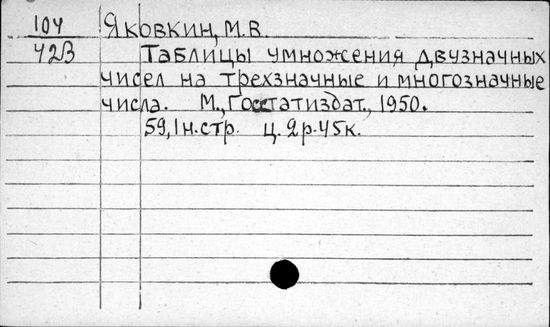 104 Яковкин, М.В.
423 Таблицы умножения двузначных
чисел на трехзначные и многозначные
числа. М., Госстатиздат, 1950.
59, 1 н. стр. ц. 2 р. 45 к.